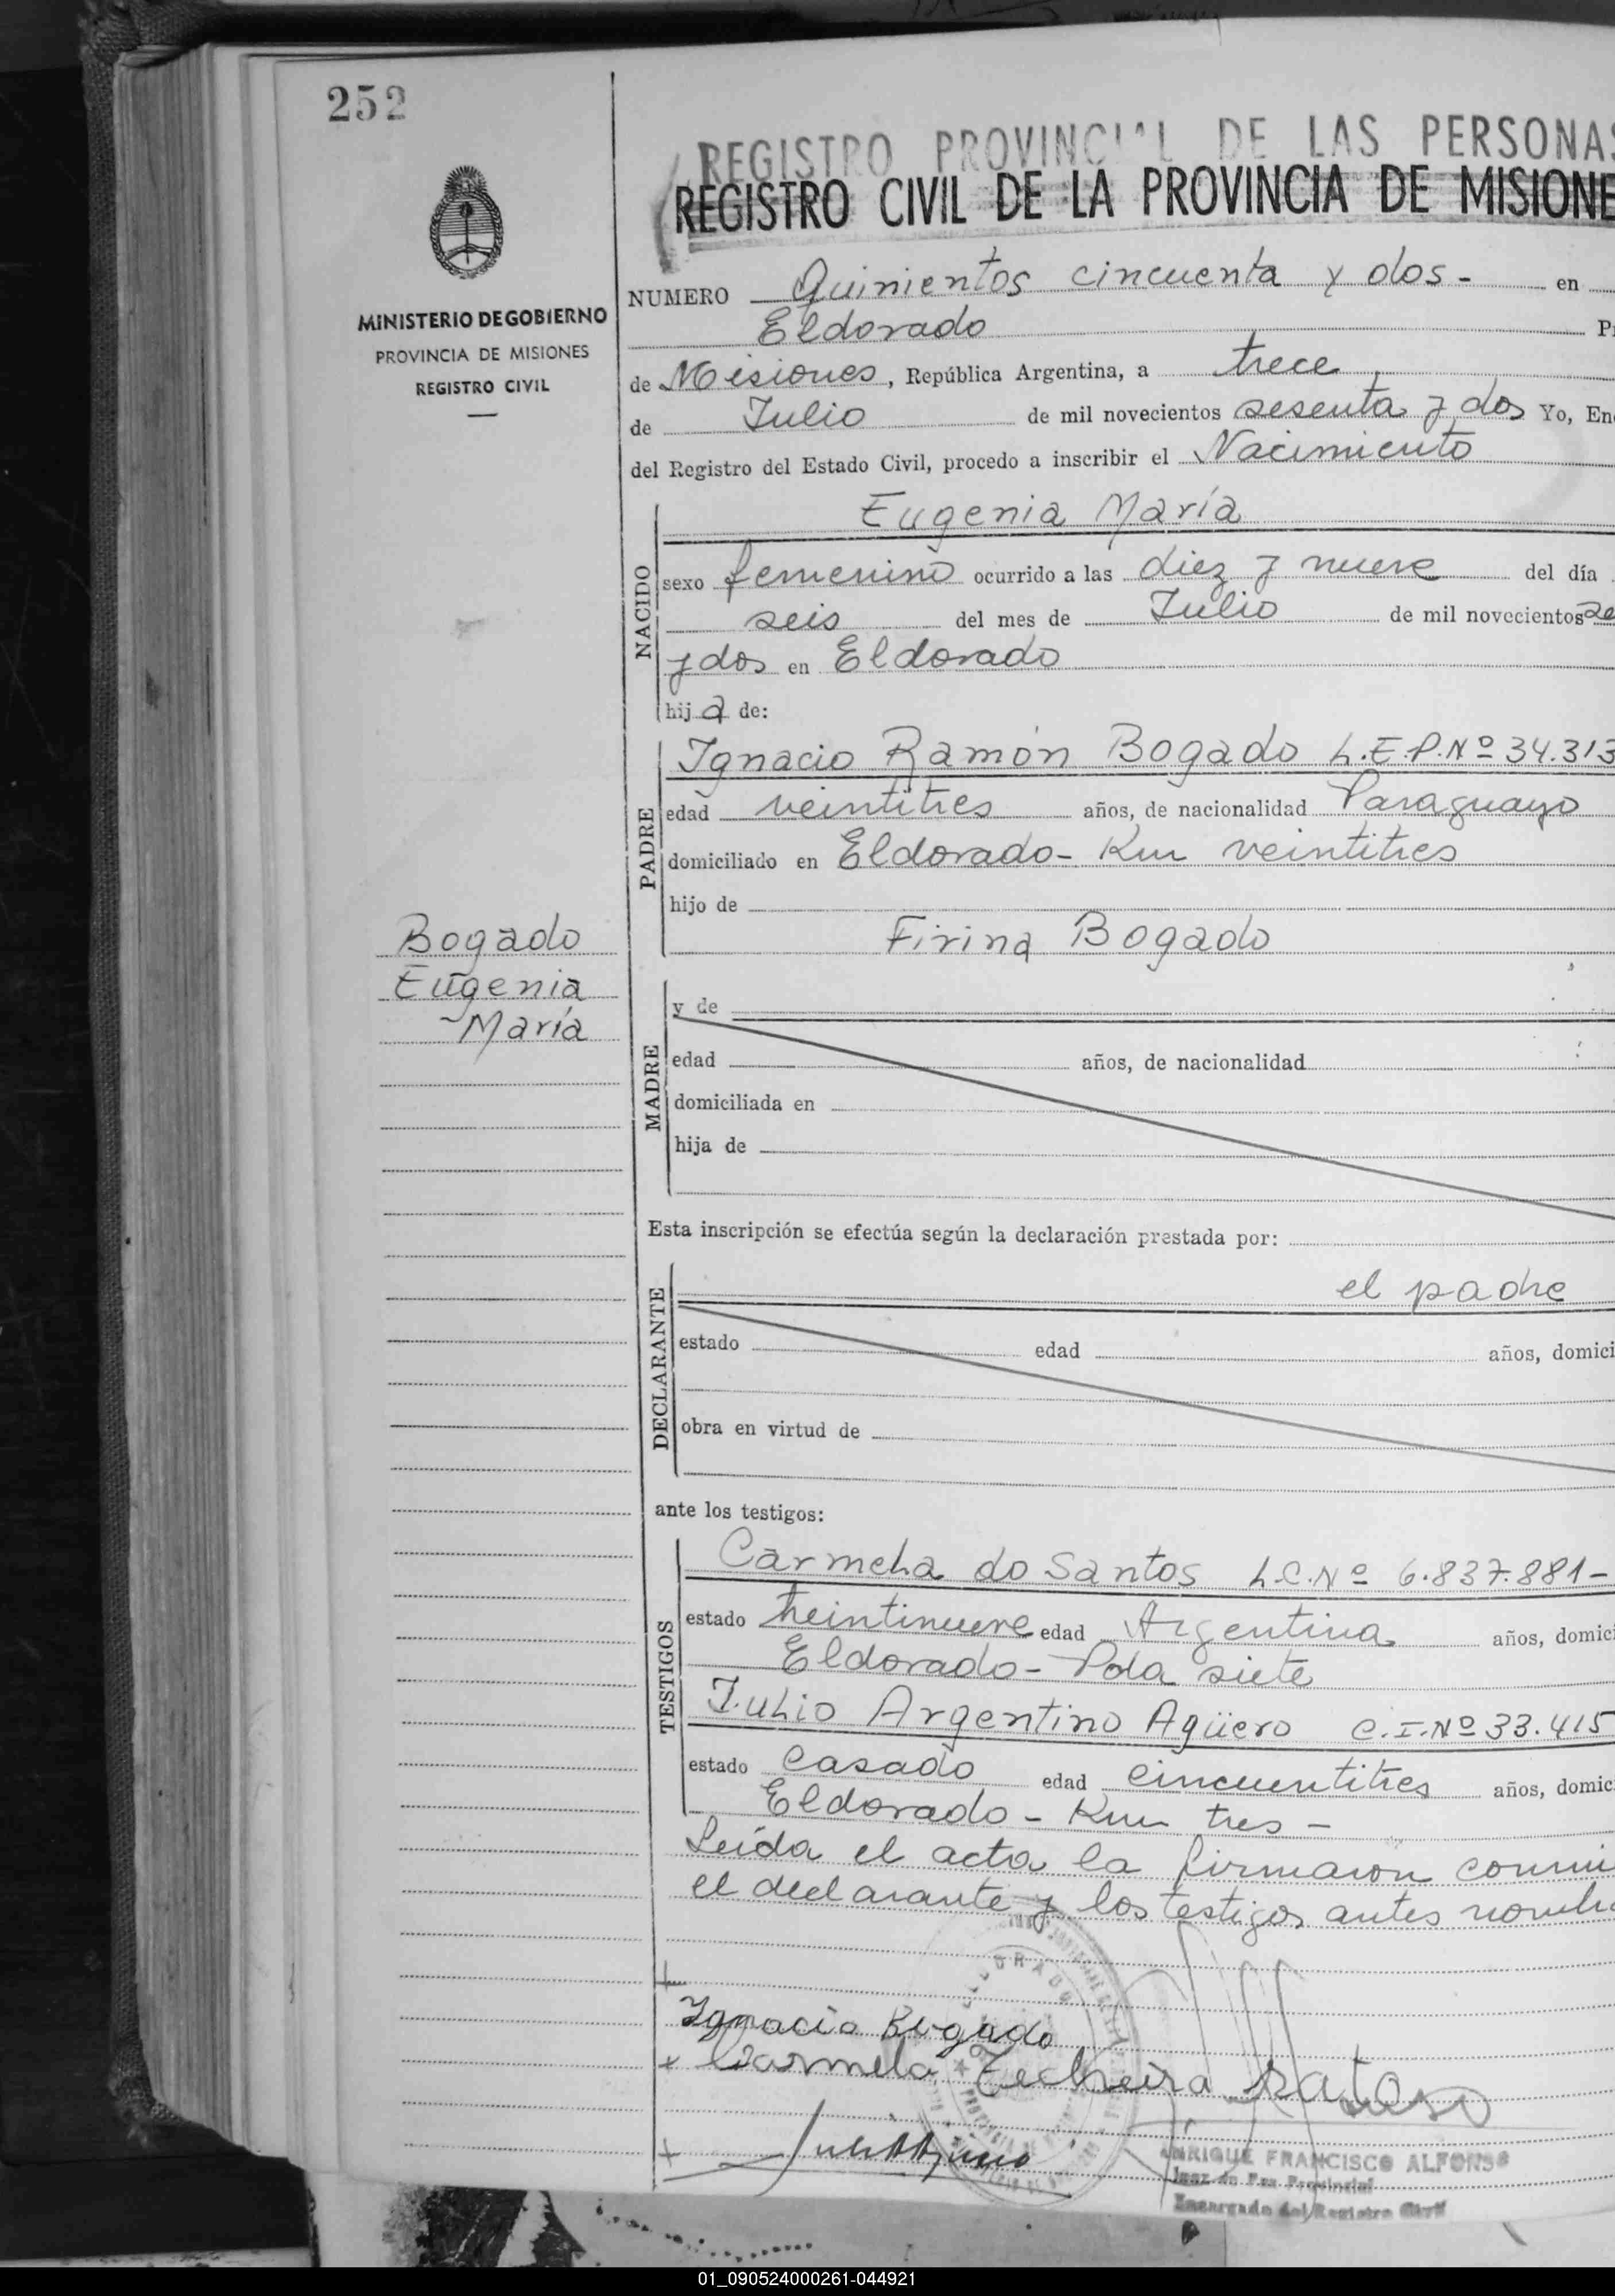 252
REGISTRO PROVINCIAL DE LAS PERSONAS
REGISTRO CIVIL DE LA PROVINCIA DE MISIONE
MINISTERIO DE GOBIERNO
PROVINCIA DE MISIONES
REGISTRO CIVIL
NUMERO Quinientos cincuenta y dos - en
Eldorado
de Misiones, República Argentina, a trece
de Julio de mil novecientos sesenta y dos Yo, En
del Registro del Estado Civil, procedo a inscribir el Nacimiento
NACIDO
Eugenia María
sexo femenino ocurrido a las diez y nueve del día
seis del mes de Julio de mil novecientos se
y dos en Eldorado
hija de:
PADRE
Ignacio Ramón Bogado L.E.P.Nº 34.313
edad veintitres años, de nacionalidad Paraguayo
domiciliado en Eldorado - Km veintitres
hijo de
Firina Bogado
Bogado
Eugenia
María
MADRE
y de
edad años, de nacionalidad
domiciliada en
hija de
Esta inscripción se efectúa según la declaración prestada por:
DECLARANTE
el padre
estado edad años, domici
obra en virtud de
ante los testigos:
TESTIGOS
Carmela do Santos L.C.Nº 6.837.881-
estado edad Argentina años, domici
Eldorado - Pda siete
Julio Argentino Agüero C.I.Nº 33.415
estado casado edad cincuentitres años, domic
Eldorado - Km tres -
Leída el acta la firmaron conmi
el declarante y los testigos antes nombr
Ignacio Bogado
Carmela
ENRIQUE FRANCISCO ALFONSO
Juez de Paz Provincial
Encargado del Registro Civil
01_090524000261-044921